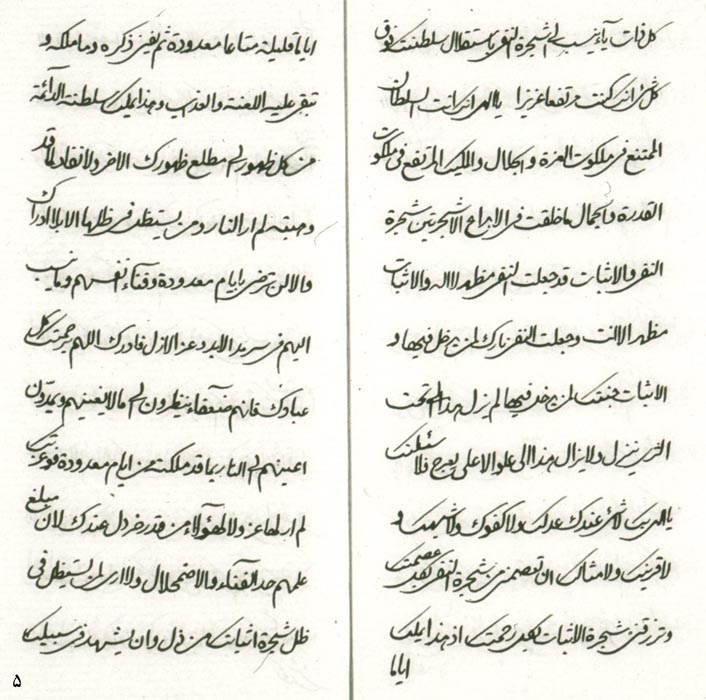 كل ذات باء ينسب الى شجرة النفى باستقلال سلطنتك فوق
كل شئ انك كنت مرتفعا عزيزا يا الهى انك انت السلطان
الممتنع فى ملكوت العزة والجلال والمليك المرتفع فى ملكوت
القدرة والجمال ما خلقت فى الابداع الا شجرتين شجرة
النفى والاثبات قد جعلت النفى مظهر لا اله والاثبات
مظهر الا انت وجعلت النفى نارك لمن يدخل فيها و
الاثبات جنتك لمن يدخل فيها لم يزل هذا الى تحت
الثرى ينزل ولا يزال هذا الى علو الاعلى يعرج فلاسئلنك
يا الهى بك لا شئ عندك عدلك ولا كفوك ولا شبهك و
لا قرينك ولا مثالك ان تعصمنى من شجرة النفى بكل عصمتك
وترزقنى شجرة الاثبات بكل رحمتك اذ هذا يملك
اياما
اياما قليلة متاعا معدودة ثم يفنى ذكره وما ملكه و
تبقى عليه اللعنة والعذاب وهذا يملك سلطنته الدائمة
من كل ظهور الى مطلع ظهورك الاخر ولا نفاد لما قد
وهبته لم ار النار ومن يستظل فى ظلها الا بلا ادراك
والا لن ترضى بايام معدودة وفناء انفسهم وما ينسب
اليهم فى سرمد الابد وعز الازل فادرك اللهم برحمتك كل
عبادك فانهم ضعفاء ينظرون الى ما لا يغنيهم ويمدون
اعينهم الى النار بما قد ملكت من ايام معدودة فوعزتك
لم ار لها عز ولا لهؤلاء من قدر خردل عندك لان مبلغ
علمهم حد الفناء والاضمحلال ولا ارى لمن يستظل فى
ظل شجرة اثباتك من ذل وان يشهد فى سبيلك
۵